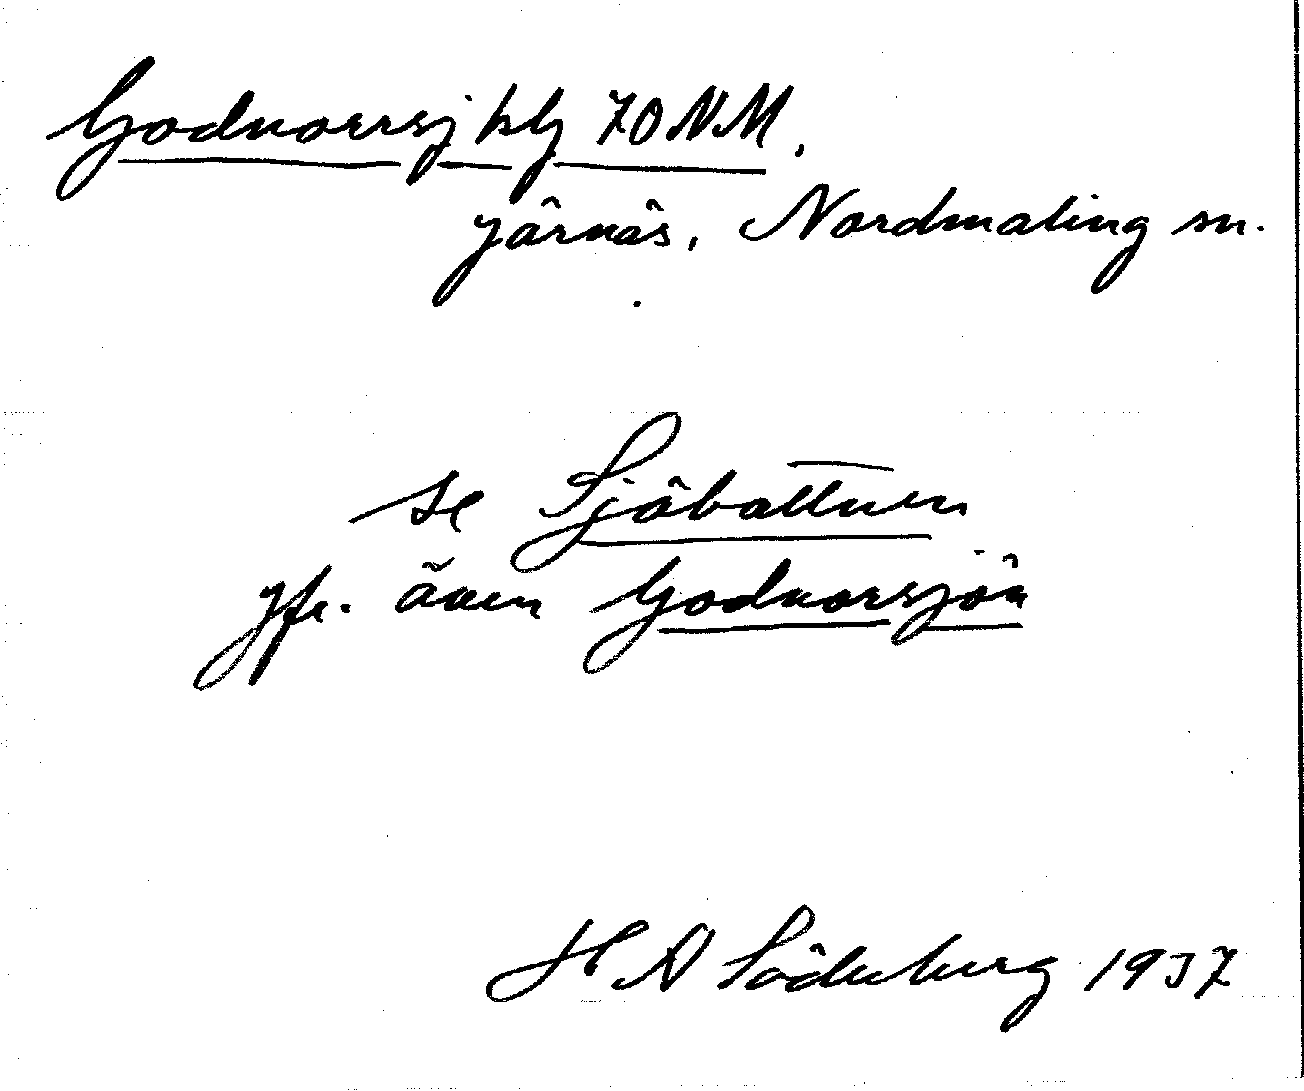 Godnorrsj kby 70 NM.
Järnäs, Nordmaling sn.
se Sjöbottnen
Jfr. även Godnorsjön
H A Söderberg 1937